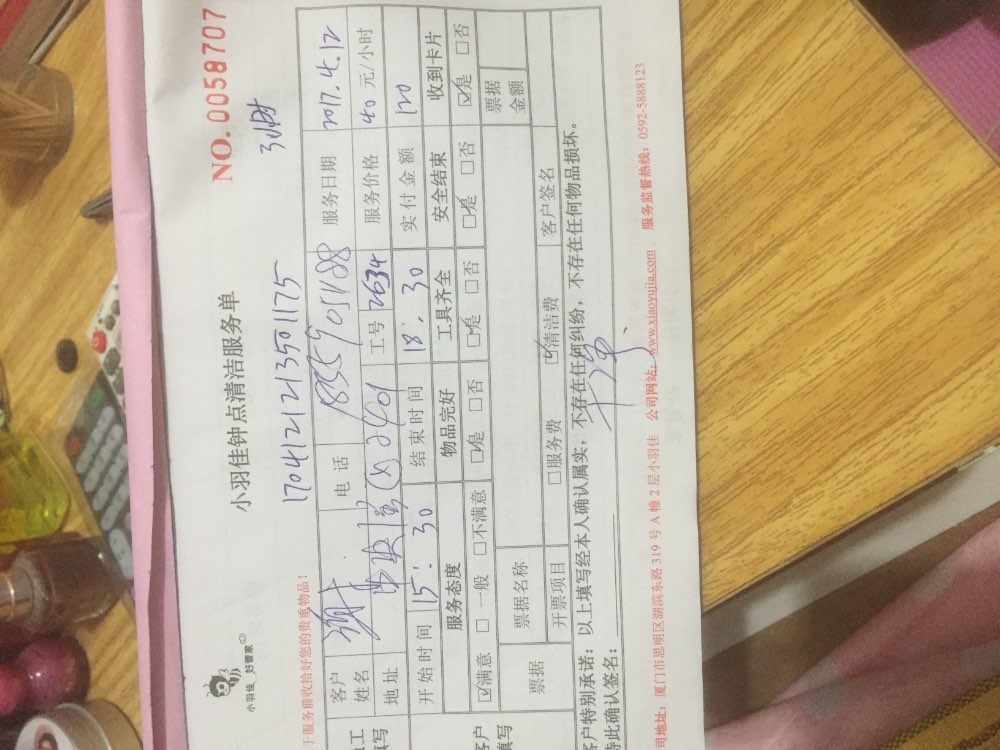 小羽佳 好管家
小羽佳钟点清洁服务单
NO.0058707
1704121213501175
3小时
于服务前收拾好您的贵重物品!
客户姓名 谢 电话 服务日期 2017.4.12
地址 工号 2634 服务价格 40 元/小时
开始时间 15:30 结束时间 18:30 实付金额 120
服务态度 物品完好 工具齐全 安全结束 收到卡片
☑满意 □一般 □不满意 ☑是 □否 ☑是 □否 ☑是 □否 ☑是 □否
票据 票据名称 票据金额
开票项目 □服务费 ☑清洁费 客户签名
客户特别承诺:以上填写经本人确认属实,不存在任何纠纷,不存在任何物品损坏。
特此确认签名:
司地址:厦门市思明区湖滨东路 319 号 A 幢 2 层小羽佳 公司网站:www.xiaoyujia.com 服务监督热线:0592-5888123